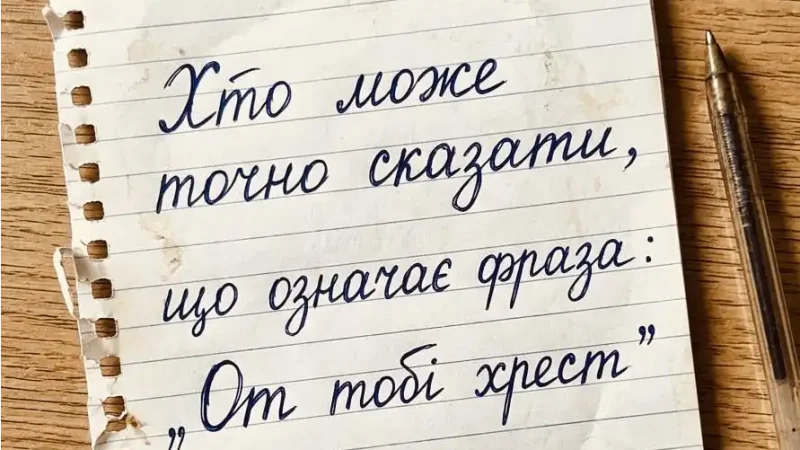 Хто може
точно сказати,
що означає фраза:
„От тобі хрест”